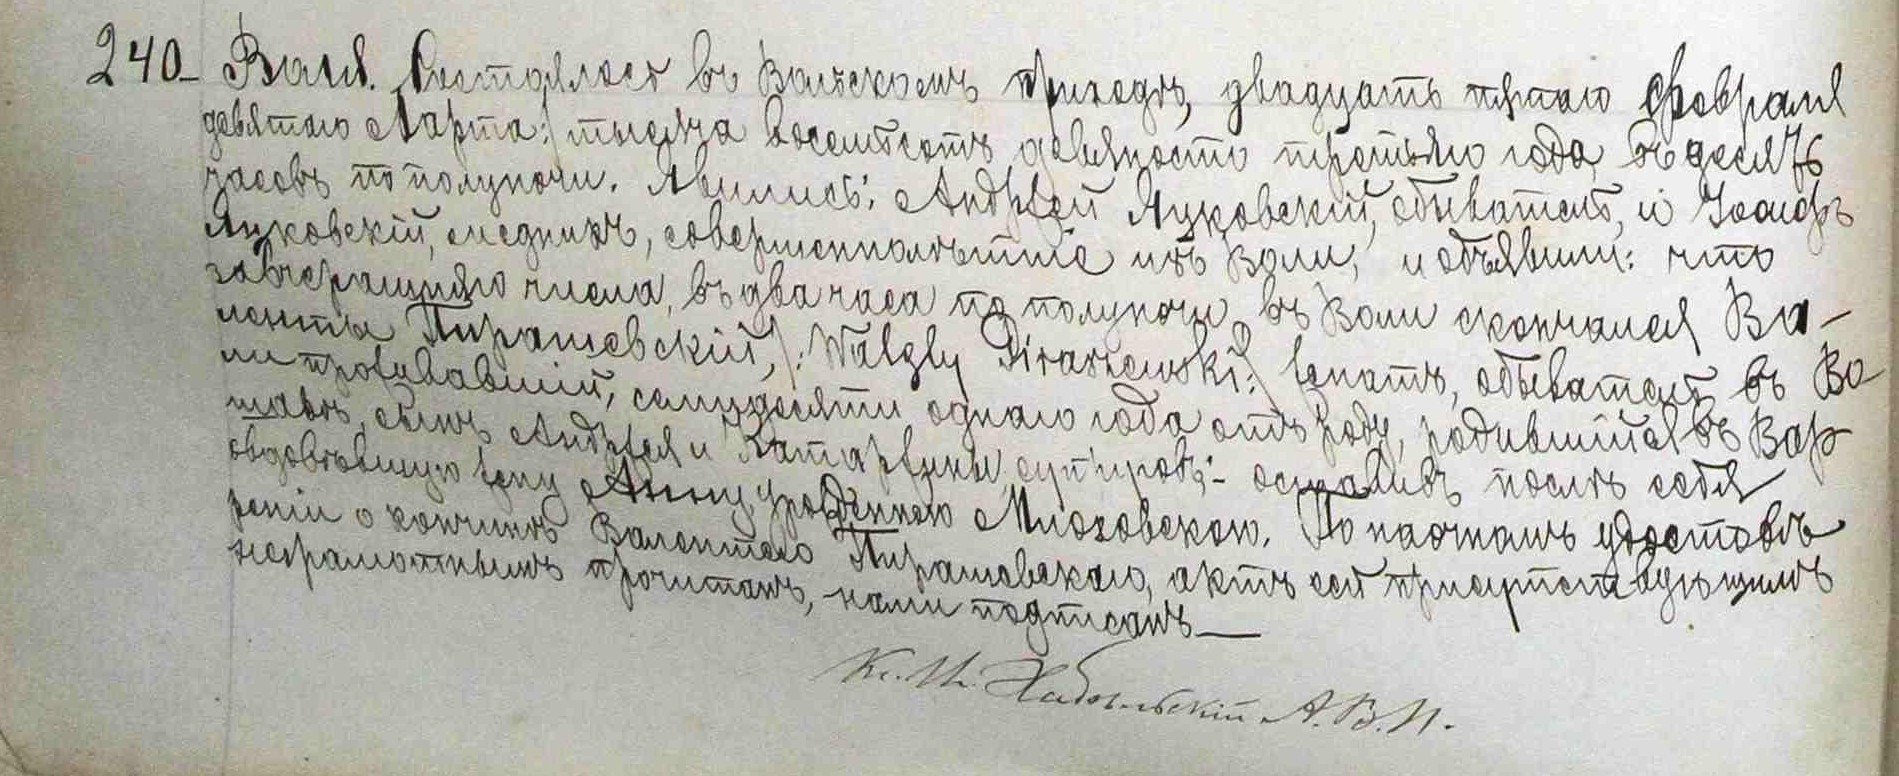 240 – Воля. Состоялось въ Вольскомъ приходѣ, двадцать пятаго Февраля
девятаго Марта:/ тысяча восемьсотъ девяносто третьяго года, въ десять
часовъ по полуночи. Явились: Андрей Яцковскій, обыватель, и Іосифъ
Яцковскій, медникъ, совершеннолѣтніе изъ Воли, и объявили: что
завчерашняго числа, въ два часа по полуночи въ Воли скончался Ва-
ленты Пирашевскій, /: Walęty Piraszewski :/ женатъ, обыватель въ Во
ли проживавшій, семидесяти однаго года отъ роду, родившійся въ Вар
шавѣ, сынъ Андрея и Катаржины супруговъ; – оставивъ послѣ себя
овдовѣвшую жену Анну, урожденною Мюховскою. По наочномъ удостовѣ
реніи о кончинѣ Валентего Пирашевскаго, актъ сей присутствующимъ
неграмотнымъ прочитанъ, нами подписанъ —
Кс. А. В. П.